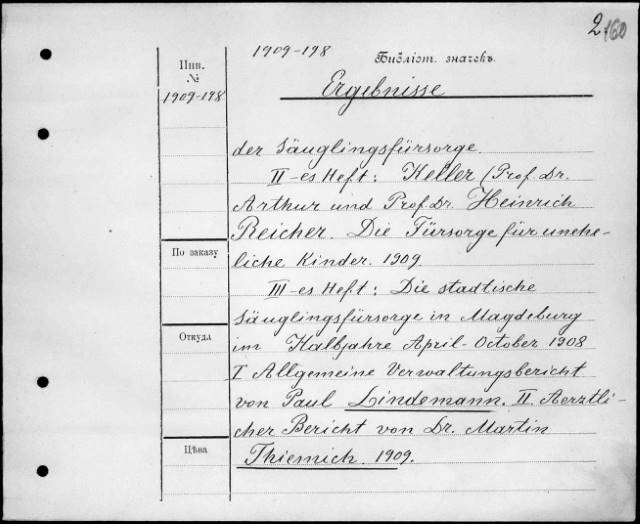 2160
1909-198
Библіот. значекъ
Инв.
№
1909-198
Ergebnisse
der Säuglingsfürsorge.
II-es Heft: Keller (Prof. Dr.
Arthur und Prof. Dr. Heinrich
Reicher. Die Fürsorge für unehe-
liche Kinder. 1909
По заказу
III-es Heft: Die stadtische
Säuglingsfürsorge in Magdeburg
Откуда
im Halbjahre April-October 1908
I Allgemeine Verwaltungsbericht
von Paul Lindemann. II. Aerztli-
cher Bericht von Dr. Martin
Цѣна
Thiemich. 1909.